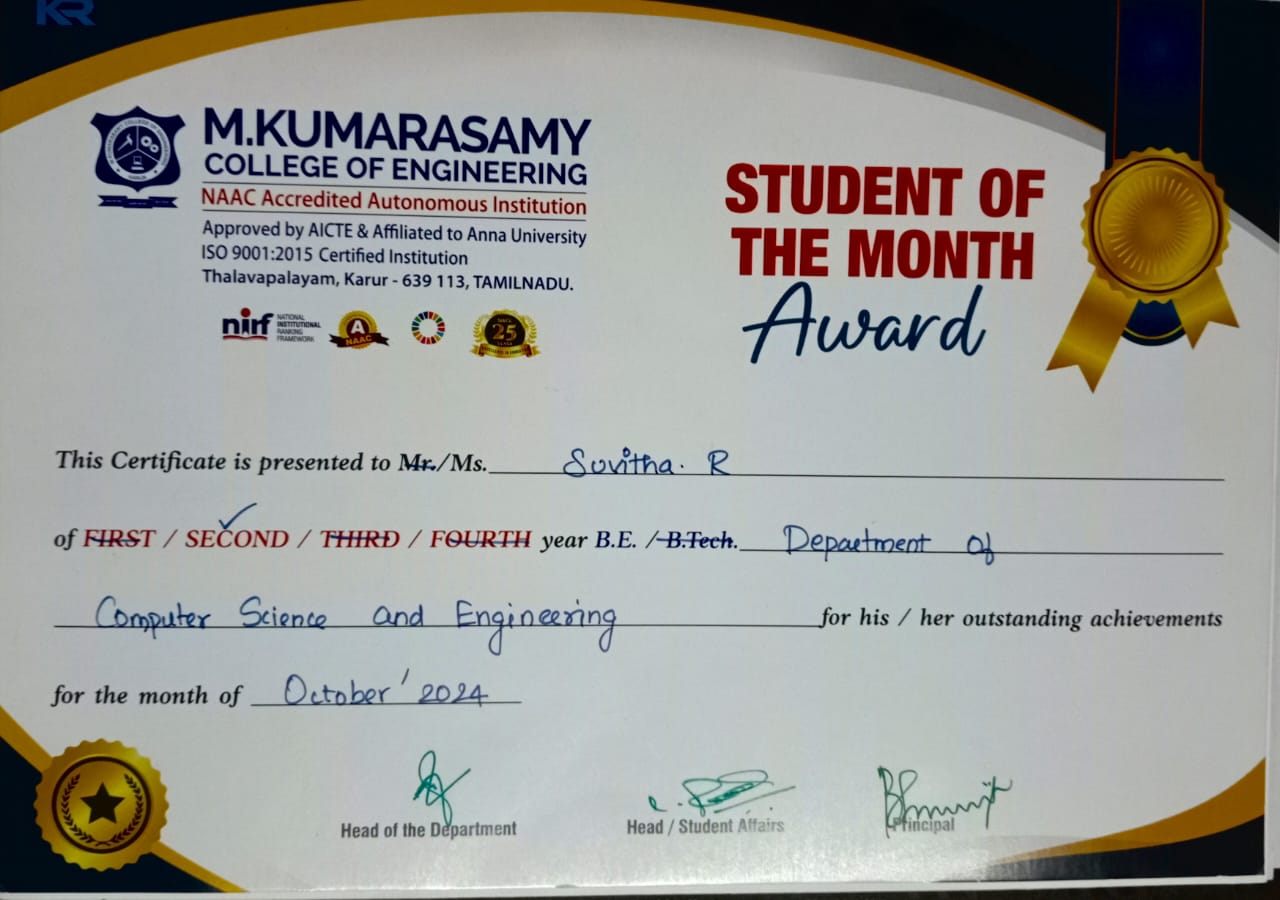 KR
M.KUMARASAMY
COLLEGE OF ENGINEERING
NAAC Accredited Autonomous Institution
Approved by AICTE & Affiliated to Anna University
ISO 9001:2015 Certified Institution
Thalavapalayam, Karur - 639 113, TAMILNADU.
nirf NATIONAL INSTITUTIONAL RANKING FRAMEWORK
A NAAC
25
STUDENT OF
THE MONTH
Award
This Certificate is presented to Mr./Ms. Suvitha. R
of FIRST / SECOND / THIRD / FOURTH year B.E. / B.Tech. Department of
Computer Science and Engineering for his / her outstanding achievements
for the month of October' 2024
Head of the Department
Head / Student Affairs
Principal